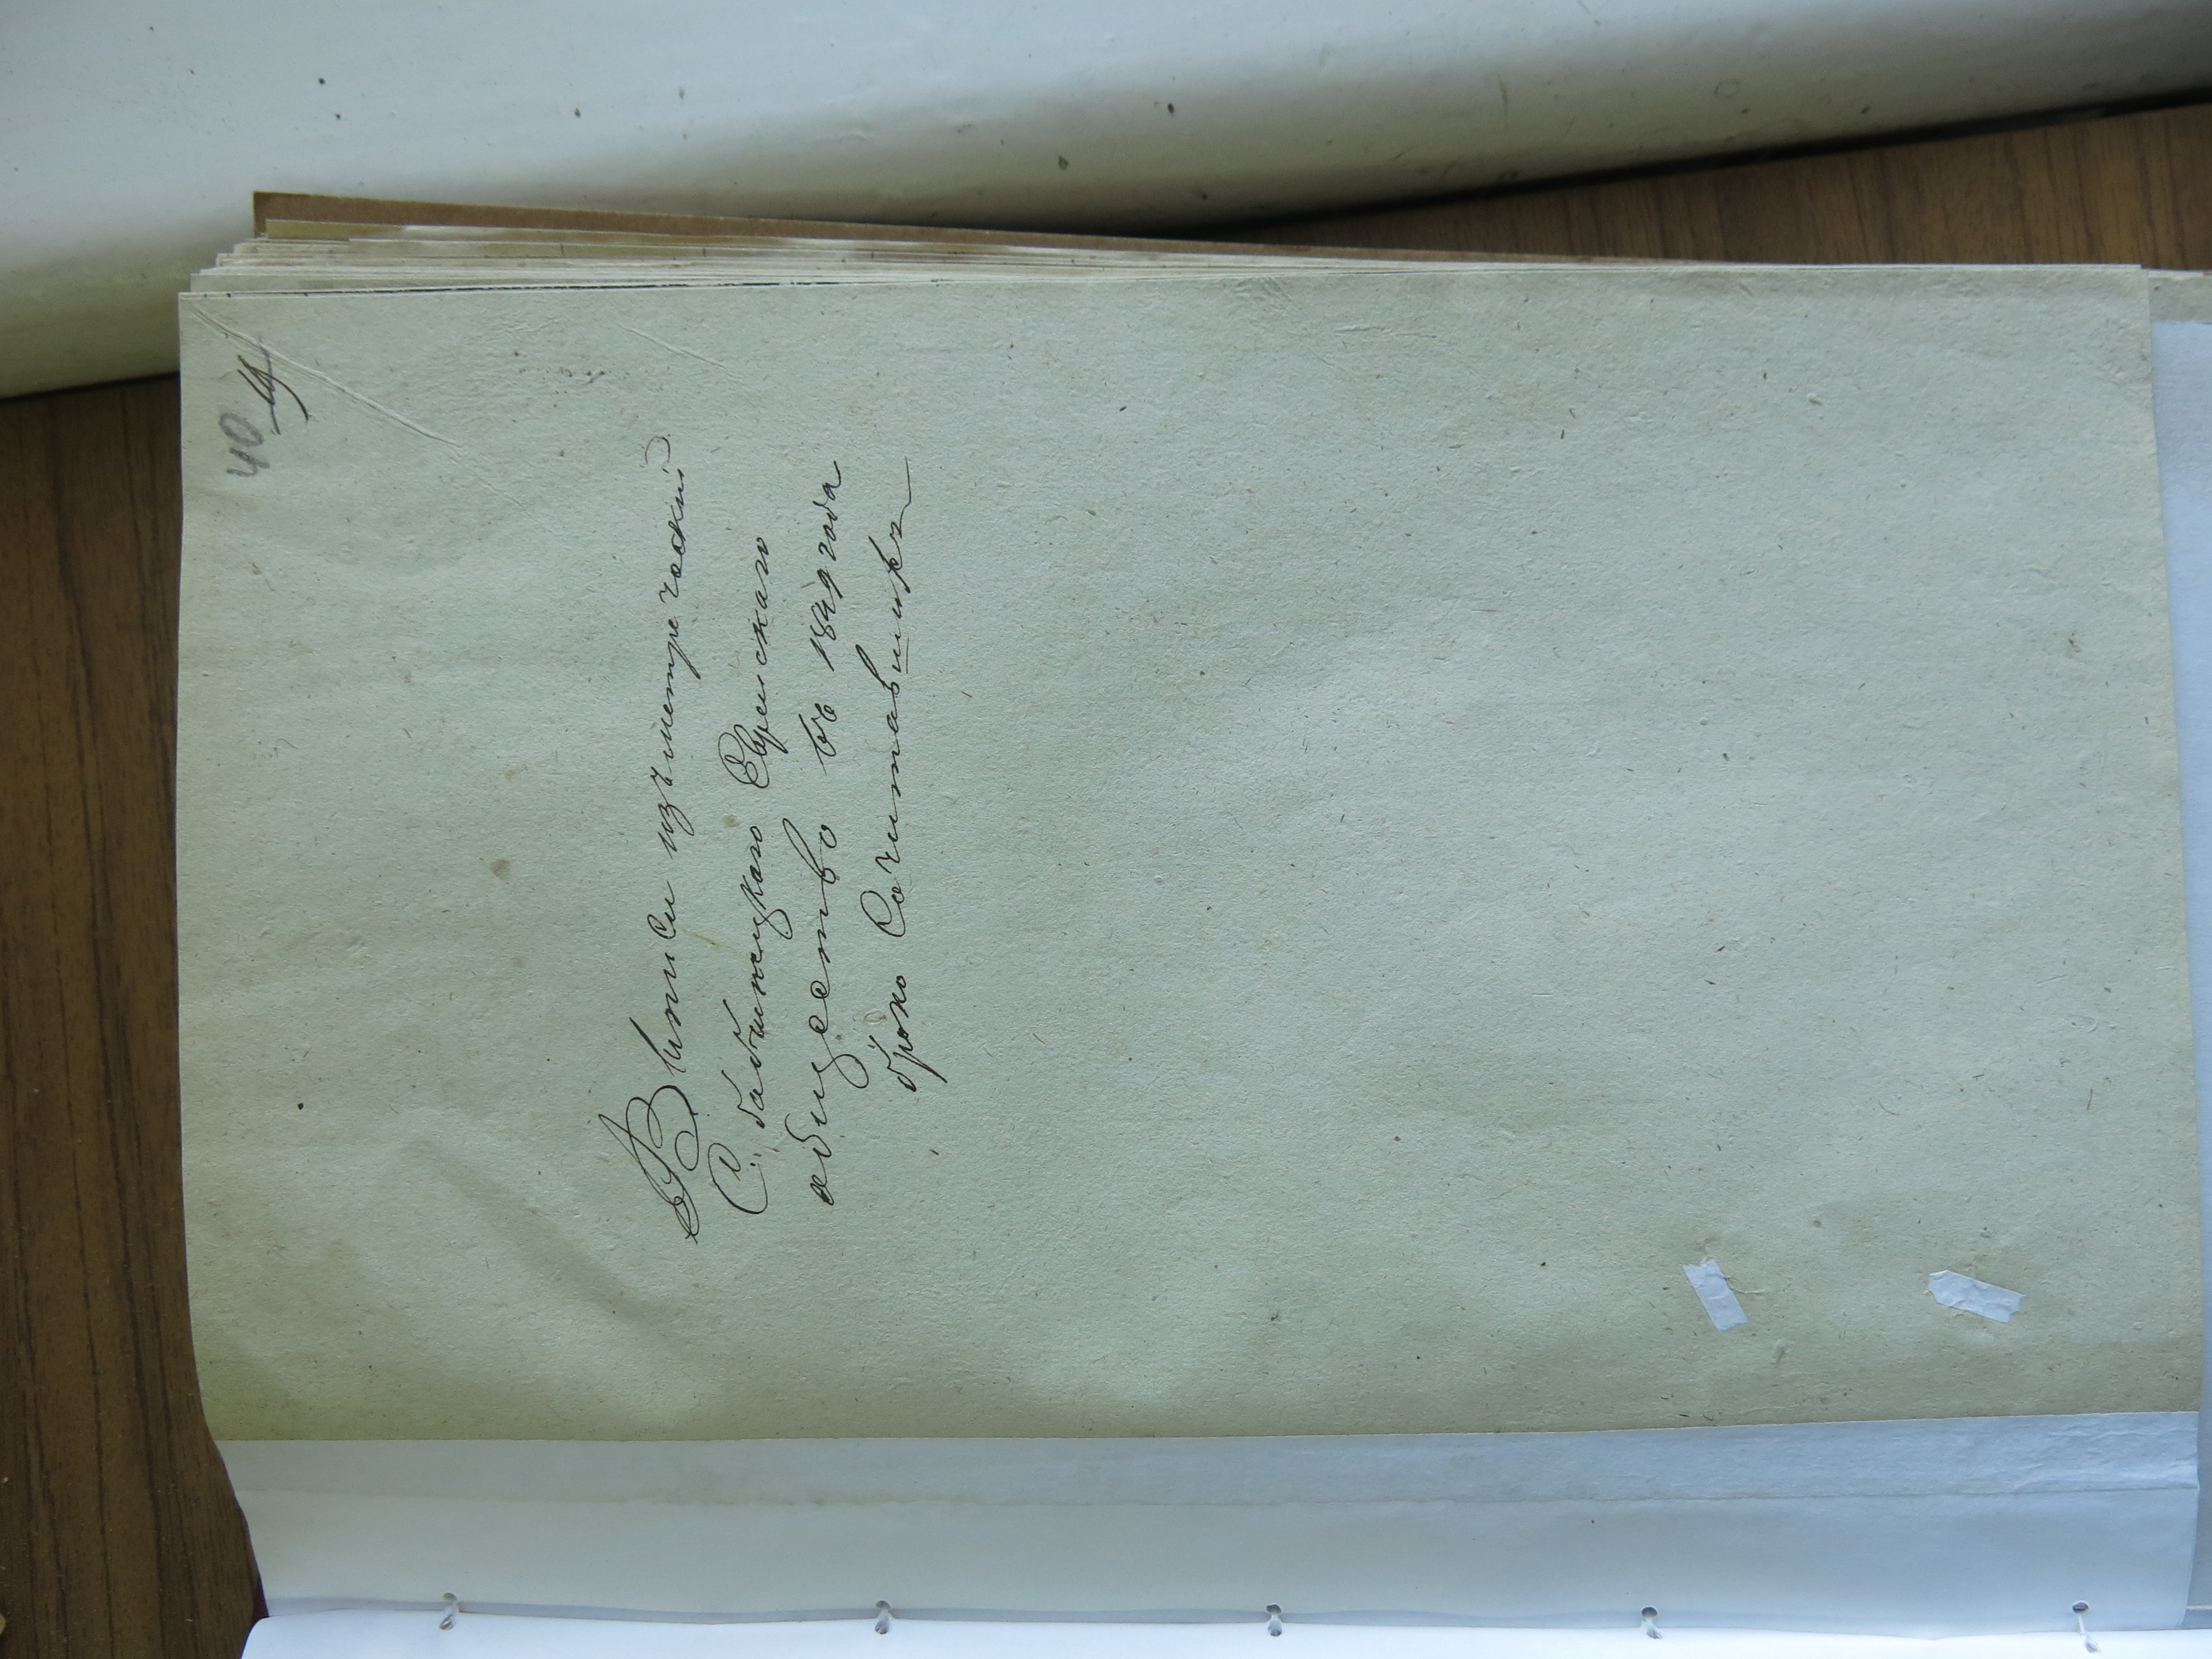 40
Виписи изъ метрическій
Слабашецкаго Еврейскаго
абщество въ 1849 года
брако Сочитавшихъ